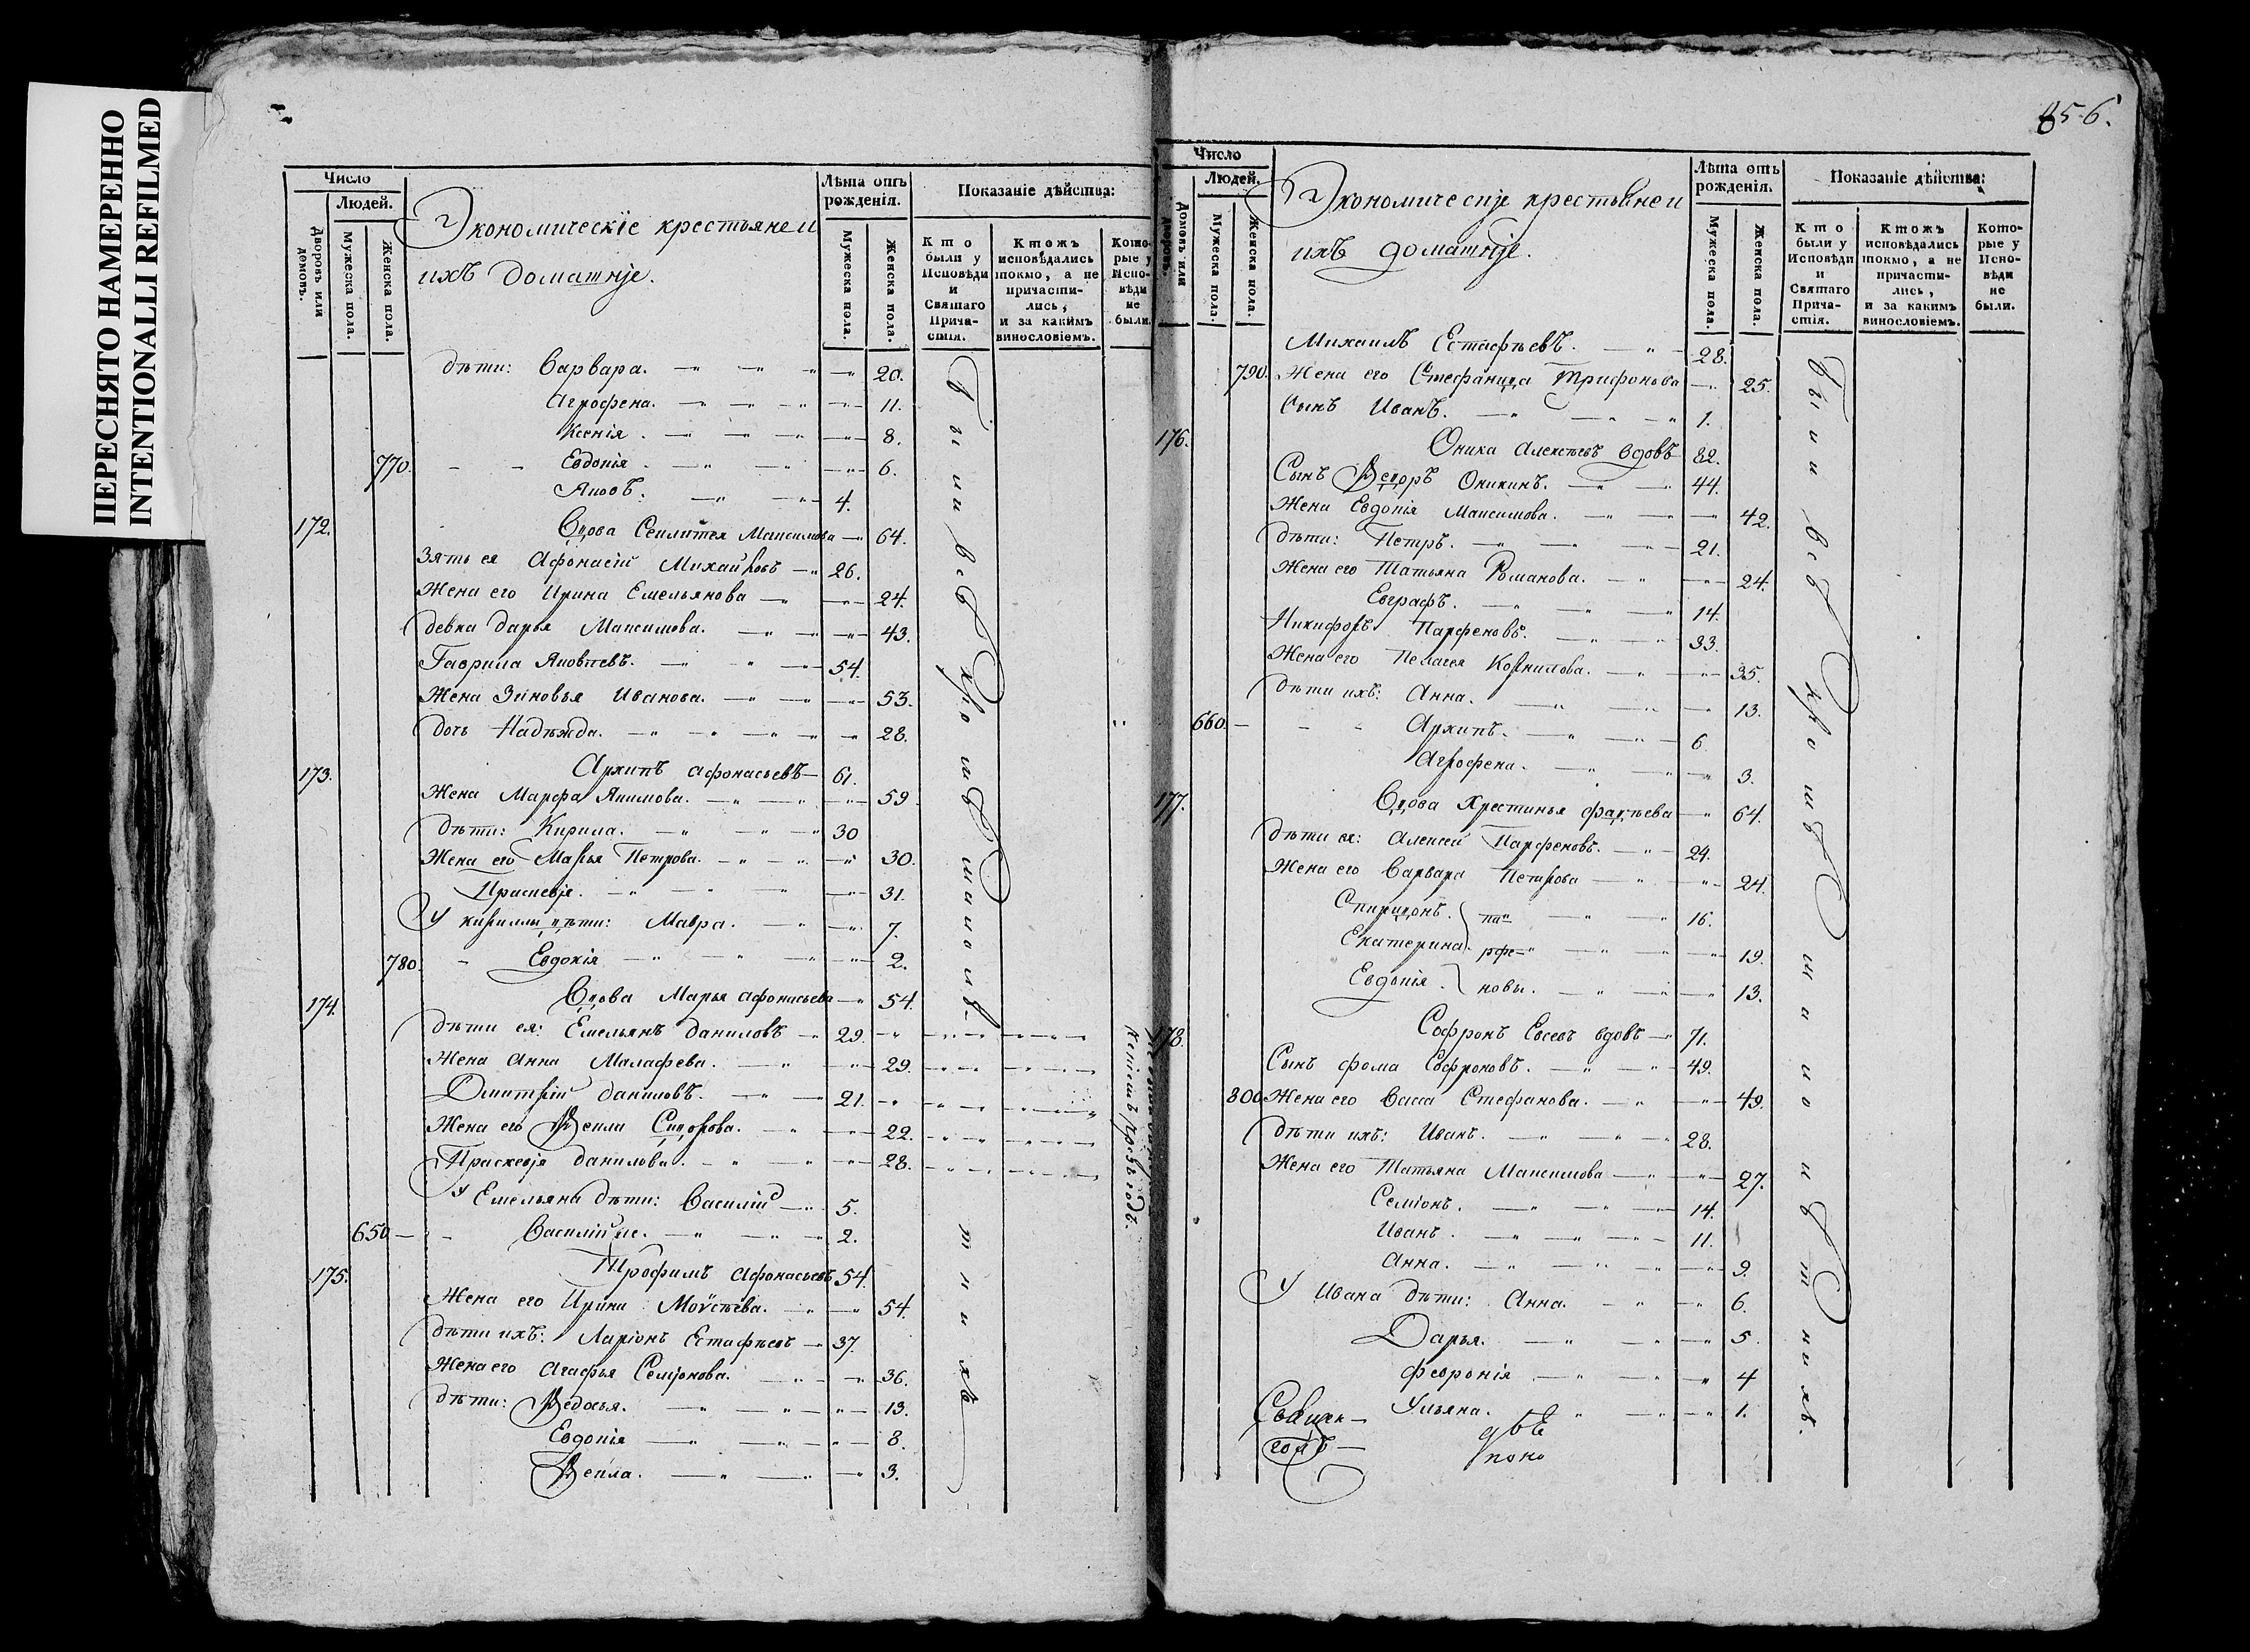 ПЕРЕСНЯТО НАМЕРЕННО
INTENTIONALLI REFILMED
Число
Людей.
Дворовъ или домовъ.
Мужеска пола.
Женска пола.
Экономическіе крестьяне и
ихъ домашніе.
Лѣта отъ рожденія.
Мужеска пола.
Женска пола.
Показаніе дѣйства:
Кто были у Исповѣди и Святаго Причастія.
Ктожъ исповѣдались токмо, а не причастились, и за какимъ винословіемъ.
Которые у Исповѣди не были.
дѣти: Варвара. 20.
Агрофена. 11.
Ксенія. 8.
770. Евдокія. 6.
Яковъ. 4.
172. Вдова Максимова 64.
Зять ея Афонасій Михайловъ 26.
Жена его Ирина Емельянова 24.
девка дарья Максимова. 43.
Гаврила Яковлевъ. 54.
Жена Зиновья Иванова. 53.
дочь Надежда. 28.
173. Архипъ афонасьевъ 61.
Жена Марфа Якимова. 59
дѣти: Кирила. 30
Жена его Марья Петрова. 30.
Праскевіе. 31.
У кириллы дѣти: Мавра. 7.
780. Евдокія 2.
174. Вдова Марья афонасьева 54.
дѣти ея: Емельянъ даниловъ 29.
Жена анна Малафеева. 29.
Дмитрій даниловъ. 21.
Жена его Ѳекла Сидорова. 22.
Праскевія данилова. 28.
У Емельяна дѣти: Василій 5.
650 Василій же. 2.
175. Трофимъ афонасьевъ 54.
Жена его Ирина Моѵсѣева. 54.
дѣти ихъ: Ларіонъ Естафьевъ 37.
Жена его агафья Семіонова. 36.
дѣти: Ѳедосья. 13.
Евдокія 8.
Ѳекла. 3.
856.
Число
Людей.
Домовъ или дворовъ.
Мужеска пола.
Женска пола.
Экономическіе крестьяне и
ихъ домашніе.
Лѣта отъ рожденія.
Мужеска пола.
Женска пола.
Показаніе дѣйства:
Кто были у Исповѣди и Святаго Причастія.
Ктожъ исповѣдались токмо, а не причастились, и за какимъ винословіемъ.
Которые у Исповѣди не были.
Михаилъ Естафьевъ. 28.
790. Жена его Стефанида Трифонова 25.
Сынъ Иванъ. 1.
176. Оника алексѣевъ вдовъ 82.
Сынъ Ѳедоръ Оникинъ. 44.
Жена Евдокія Максимова. 42.
дѣти: Петръ. 21.
Жена его Татьяна Романова. 24.
Евграфъ. 14.
Никифоръ Парфеновъ. 33.
Жена его Пелагея Корнилова. 35.
дѣти ихъ: Анна. 13.
660. Архипъ. 6
Агрофена. 3.
177. Вдова Христинья фадѣева 64.
дѣти ея: алексей Парфеновъ. 24.
Жена его Варвара Петрова 24.
Спиридонъ. па 16.
Екатерина. рфе 19.
Евдокія. новы. 13.
178. Софронъ Евсевъ вдовъ 71.
Сынъ фома Софроновъ. 49.
800 Жена его Васса Стефанова. 49.
дѣти ихъ: Иванъ. 28.
Жена его Татьяна Максимова 27.
Семіонъ. 14.
Иванъ. 11.
Анна. 9.
У Ивана дѣти: Анна. 6.
Дарья. 5.
февронія 4
Ульяна. 1.